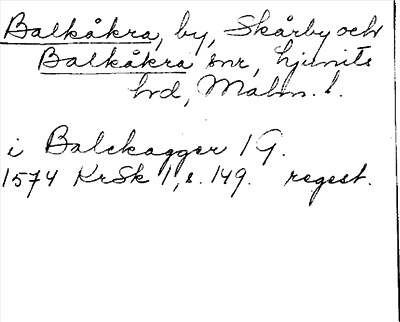 Balkåkra, by, Skårby och
Balkåkra snr, Ljunits
hd, Malm. l.
i Balckagger 1 G.
1574 KrSk 1, s. 149. regest.